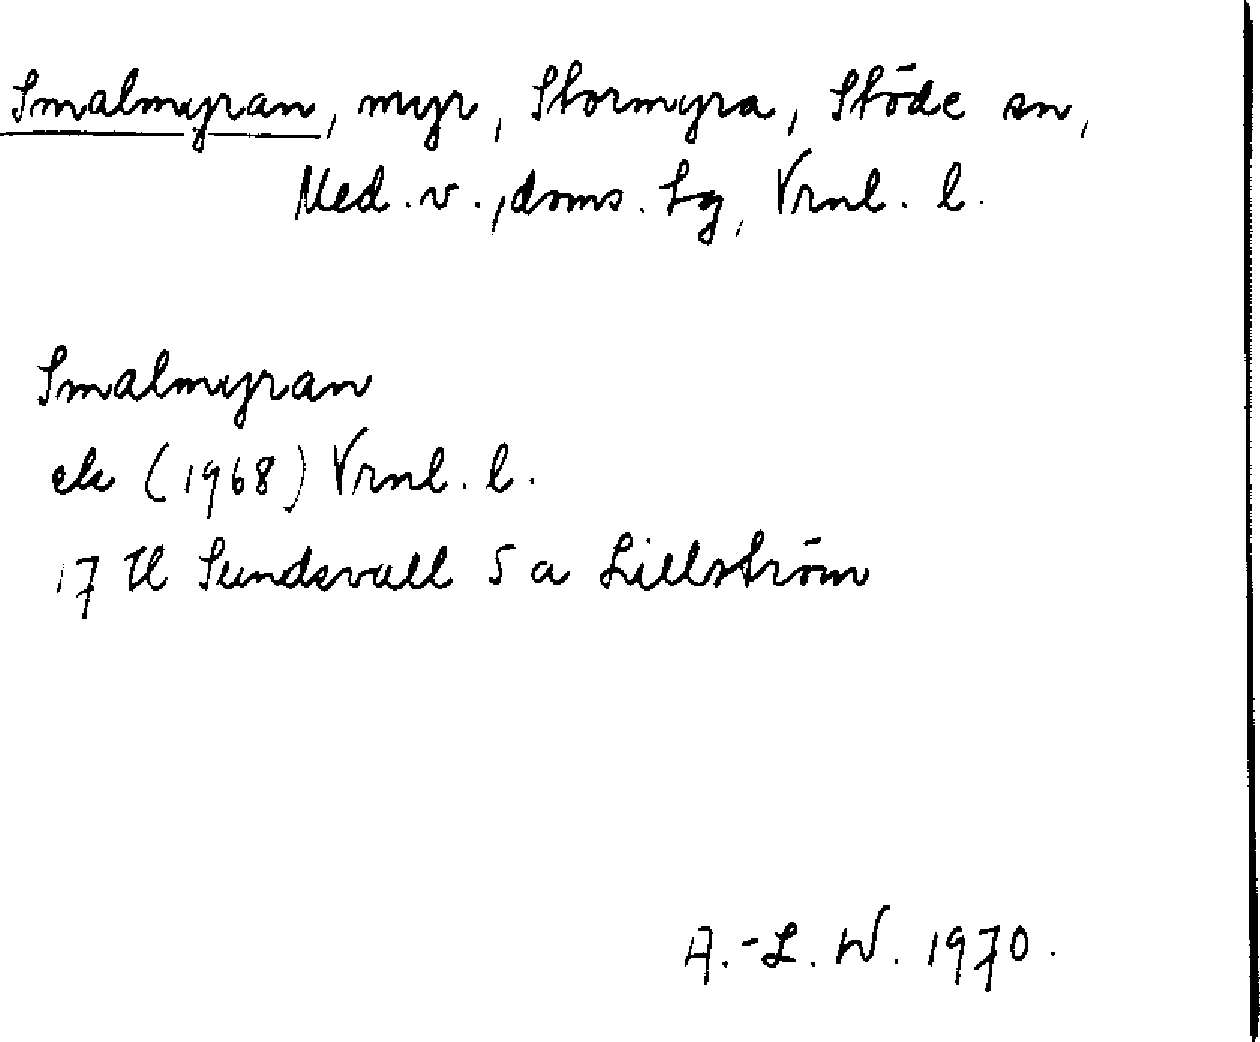 Smalmyran, myr, Stormyra, Stöde sn,
Med. v., doms. hg, Vrnl. l.
Smalmyran
ek (1968) Vrnl. l.
17 H Sundsvall 5 a Lillström
A.-L. W. 1970.